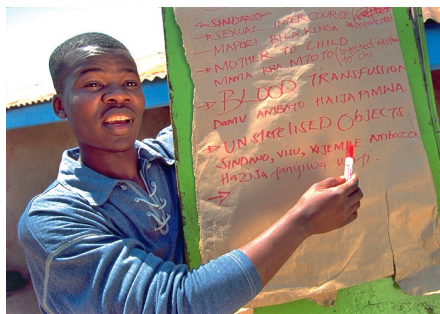 → SEXUAL INTERCOURSE
- MAPENZI BILA KINGA
→ MOTHER TO CHILD (infected Mother to Ch)
MAMA KWA MTOTO
→ BLOOD TRANSFUSSION
DAMU AMBAYO HAIJAPIMWA.
→ UNSTERELISED OBJECTS
SINDANO, VISU, VIJEMBE Ambazo
Hazija fanyiwa
→